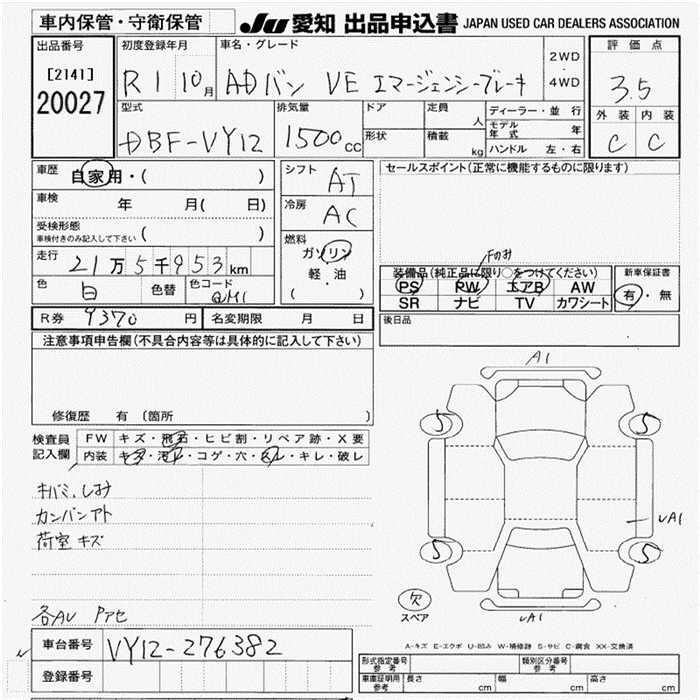 車内保管・守衛保管
JU 愛知 出品申込書 JAPAN USED CAR DEALERS ASSOCIATION
出品番号
[2141]
20027
初度登録年月
R1 10月
車名・グレード
ADバン VE エマージェンシーブレーキ
2WD
4WD
評価点
3.5
外装 内装
C C
型式
DBF-VY12
排気量
1500cc
ドア
形状
定員 人
積載 kg
ディーラー・並行
モデル年式 年
ハンドル 左・右
車歴 自家用・( )
車検 年 月( 日)
受検形態
車検付きのみ記入して下さい ( )
走行 21万5千953km
色 白 色替 色コード QM1
シフト AT
冷房 AC
燃料
ガソリン
軽・油
( ・ )
セールスポイント(正常に機能するものに限ります)
Fのみ
装備品(純正品に限り○をつけてください)
PS PW エアB AW
SR ナビ TV カワシート
新車保証書
有・無
R券 9370円 名変期限 月 日
後日品
注意事項申告欄(不具合内容等は具体的に記入して下さい)
修復歴 有 〔箇所 〕
検査員記入欄
FW キズ・飛石・ヒビ割・リペア跡・X要
内装 キズ・汚れ・コゲ・穴・スレ・キレ・破レ
キバミ、しみ
カンバンアト
荷室キズ
各AU Pアセ
車台番号 VY12-276382
登録番号
A1
5 5
UA1
5 5
欠
スペア
UA1
A-キズ E-エクボ U-凹み W-補修跡 S-サビ C-腐食 XX-交換済
形式指定番号 参考
類別区分番号 参考
車庫証明用 参考 長さ cm 幅 cm 高さ cm